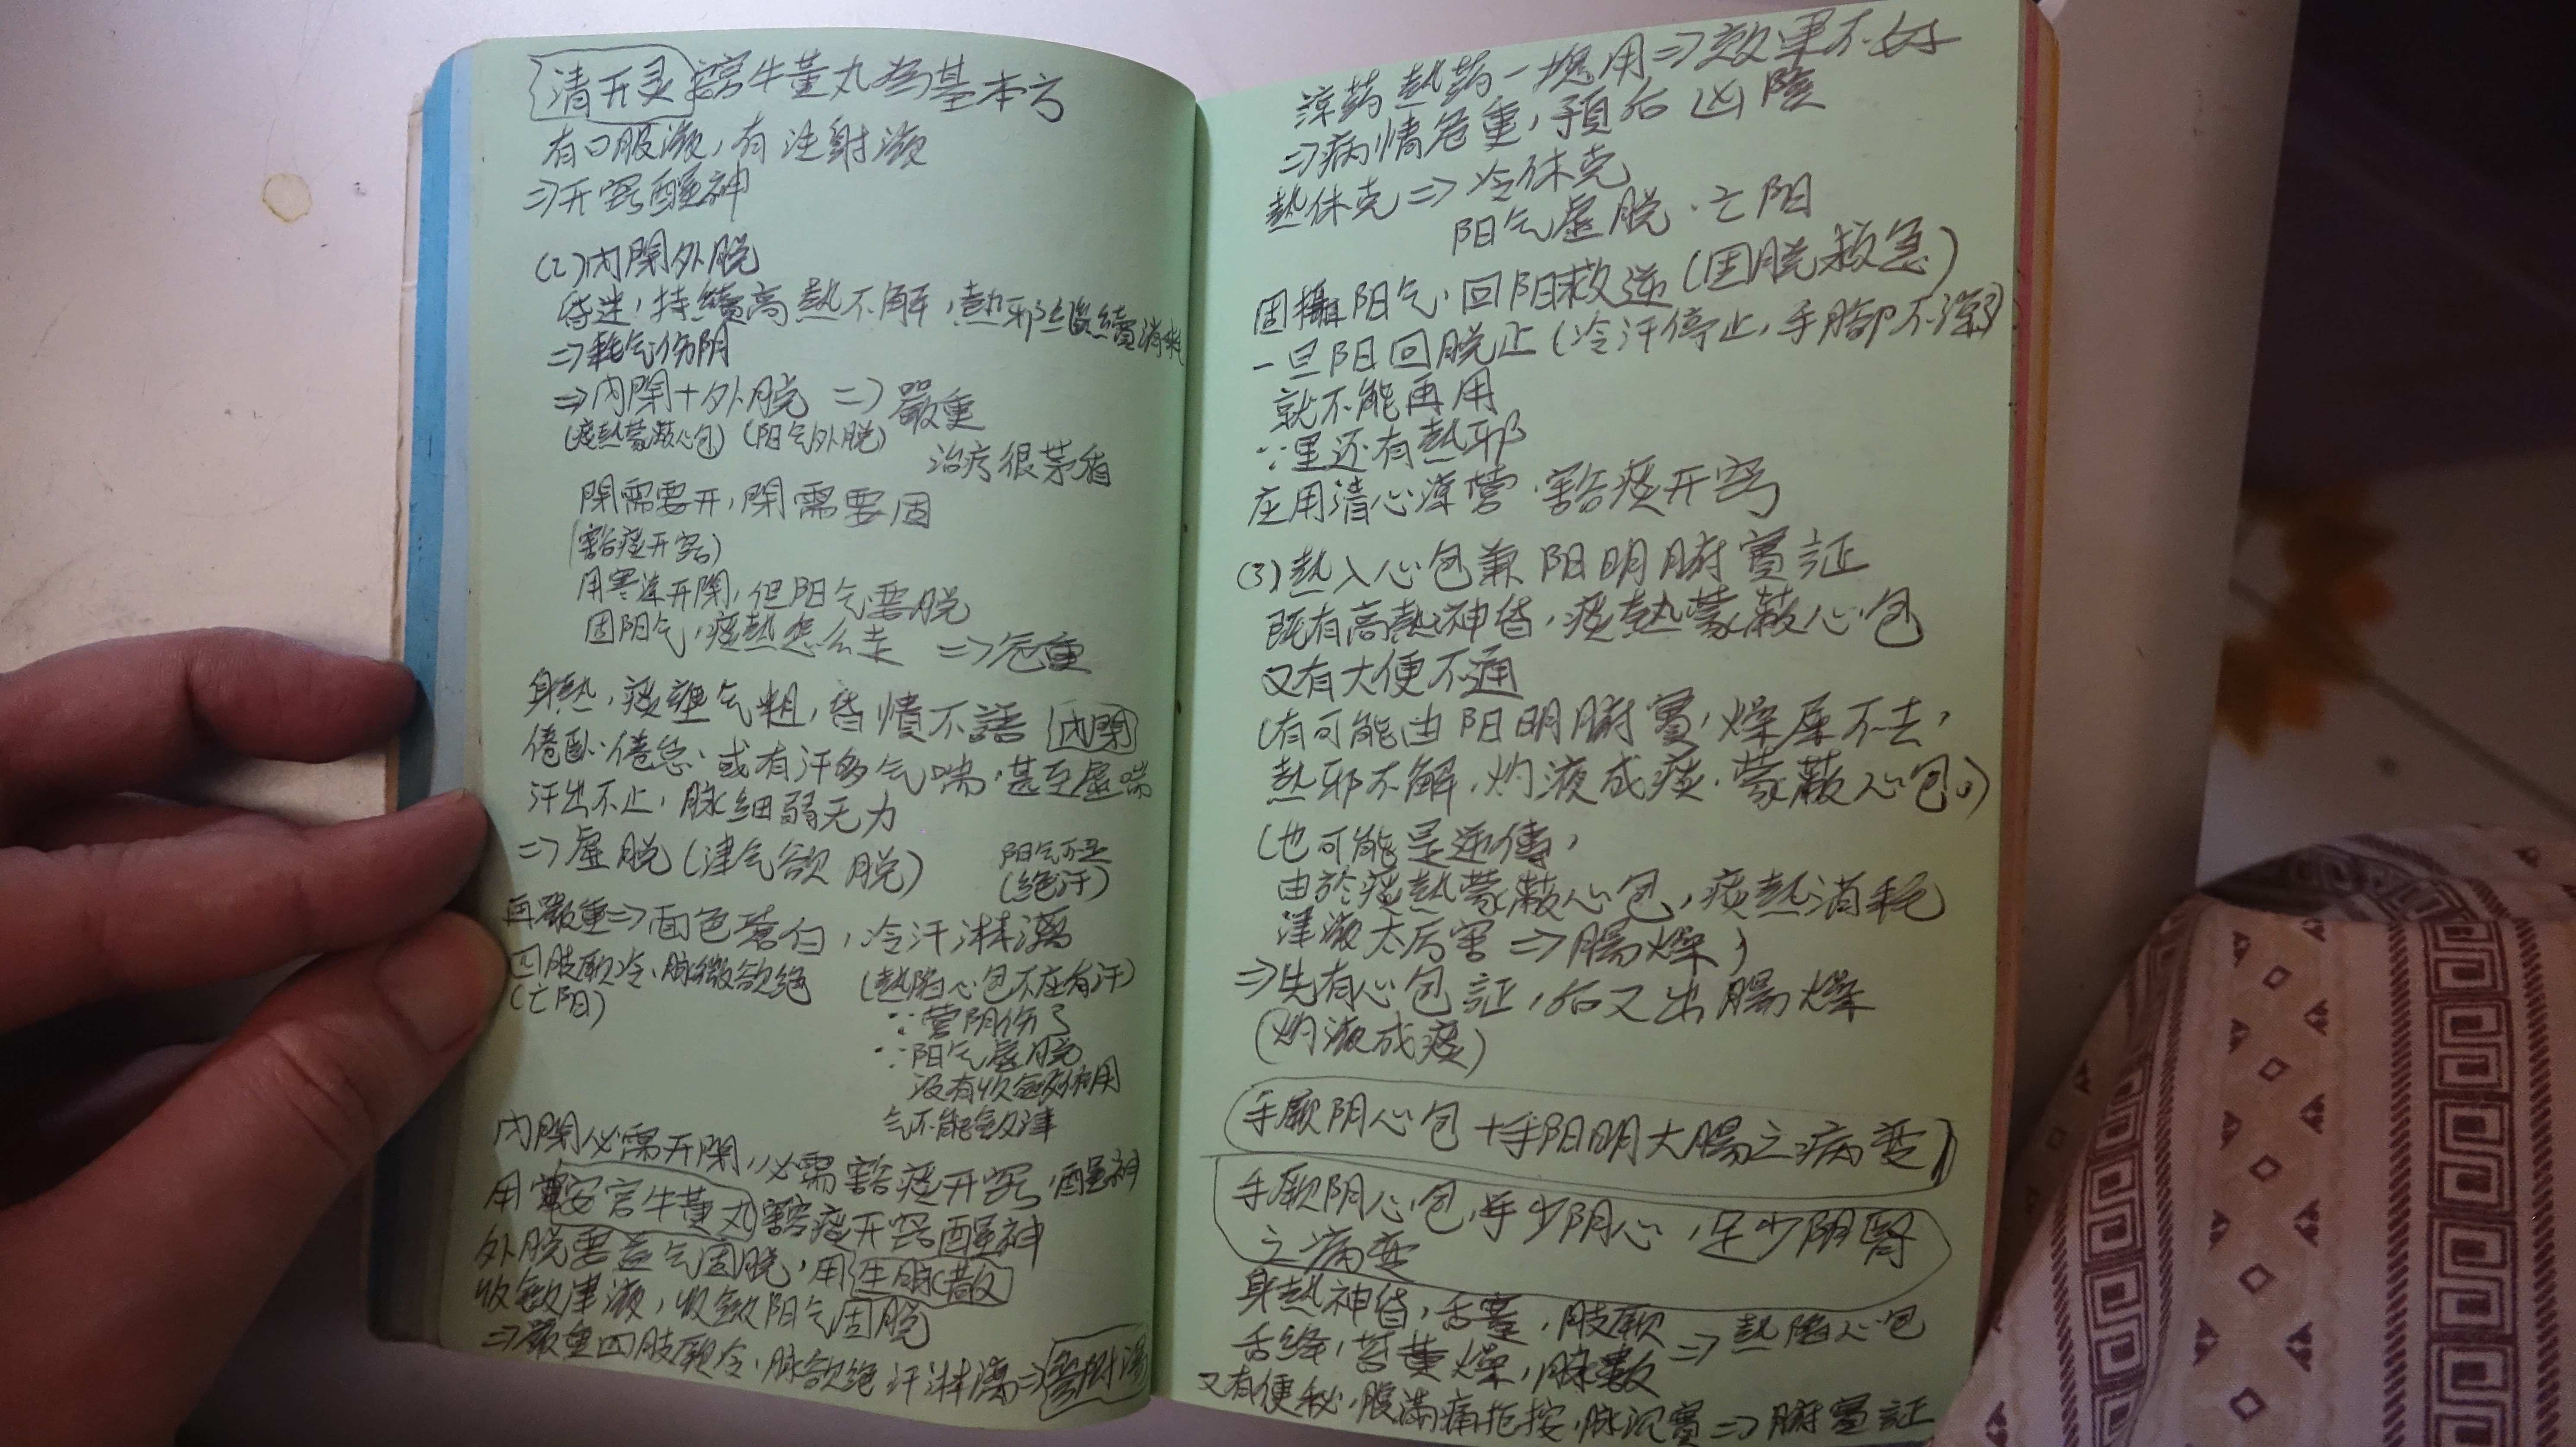 清开灵 安宫牛黄丸为基本方
有口服液，有注射液
⇒开窍醒神
(2)内閉外脱
昏迷，持續高熱不解，熱邪継續消耗
⇒耗气伤阴
⇒内閉＋外脱 ⇒嚴重
(痰熱蒙蔽心包) (阳气外脱)
治疗很茅盾
閉需要开，閉需要固
(豁痰开窍)
用寒凉开閉，但阳气要脱
固阳气，痰熱怎么走 ⇒危重
身熱，痰壅气粗，昏憒不語 内閉
倦卧、倦怠、或有汗多气喘，甚至虚喘
汗出不止，脉细弱无力
⇒虚脱(津气欲脱)
阳气不足
(绝汗)
再嚴重⇒面色蒼白，冷汗淋漓
四肢厥冷、脉微欲绝
(亡阳)
(熱陷心包不应有汗)
∵营阴伤了
∵阳气虚脱
没有收敛作用
气不能敛津
内閉必需开閉，必需豁痰开窍，醒神
用安宫牛黄丸豁痰开窍醒神
外脱要益气固脱，用生脉散
收敛津液，收敛阳气固脱
⇒嚴重四肢厥冷、脉欲绝 汗淋漓⇒参附湯
凉药熱药一塊用⇒效果不好
⇒病情危重，預后凶險
熱休克⇒冷休克
阳气虚脱．亡阳
固攝阳气，回阳救逆(固脱救急)
一旦阳回脱止(冷汗停止，手脚不凉)
就不能再用
∵里还有熱邪
应用清心凉營．豁痰开窍
(3)熱入心包兼阳明腑實証
既有高熱神昏，痰熱蒙蔽心包
又有大便不通
(有可能由阳明腑實，燥屎不去，
熱邪不解．灼液成痰．蒙蔽心包。)
(也可能是逆傳，
由於痰熱蒙蔽心包，痰熱消耗
津液太厉害⇒腸燥)
⇒先有心包証，后又出腸燥
(灼液成痰)
手厥阴心包＋手阳明大腸之病变
手厥阴心包，手少阴心，足少阴腎
之病变
身熱神昏，舌蹇，肢厥
舌绛，苔黄燥，脉數 ⇒熱陷心包
又有便秘，腹满痛拒按，脉沉實⇒腑實証